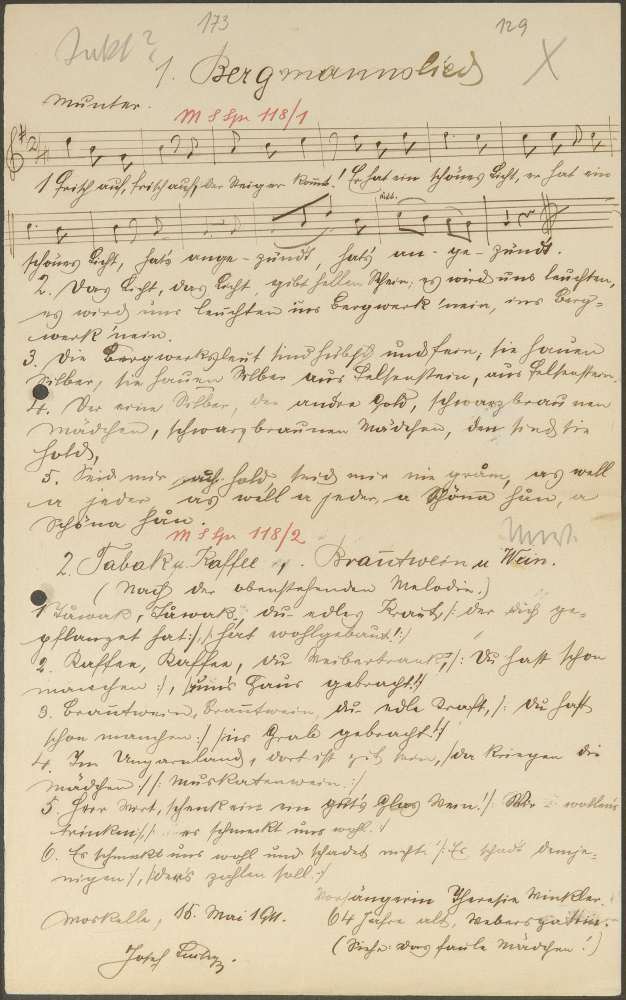 173
129
1. Bergmannslied X
Munter.
M S Spr 118/1
1 Frisch auf, frisch auf, der Steiger kommt! Er hat ein schönes Licht, er hat ein
schönes Licht, hat's ange-zündt, hat's an-ge-zündt.
2. Das Licht, das Licht gibt hellen Schein; es wird uns leuchten,
es wird uns leuchten ins Bergwerk 'nein, ins Berg-
werk 'nein.
3. Die Bergwerksleut sind hübsch und fein; sie hauen
Silber, sie hauen Silber aus Felsenstein, aus Felsenstein.
4. Der eine Silber, der andre Gold, schwarzbraunen
Mädchen, schwarzbraunen Mädchen, den sind sie
hold,
5. Seid mir auch hold, seid mir nie gram, as well
a jeder as well a jeder, a Schöna hån, a
Schöna hån.
M S Spr 118/2
2. Tabak u. Kaffee, Brantwein u Wein.
(Nach der obenstehenden Melodie.)
1 Tåwak, Tåwak, du edles Kraut, /: der dich ge-
pflanzet hat :/, /: hat wohlgebaut! :/
2. Kaffee, Kaffee, du Weibertrank, /: Du hast schon
manchen :/, /: um's Haus gebracht! :/
3. Branntwein, Branntwein, du edle Kraft, /: Du hast
schon manchen :/ /: ins Grab gebracht! :/
4. Im Ungarnland, dort ist gut sein, /: da kriegen die
Mädchen :/ /: Muskatenwein :/
5. Herr Wirt, schenk ein ein gut's Glas Wein! /: Wir wollens
trinken :/, /: es schmeckt uns wohl. :/
6. Es schmeckt uns wohl und schadet nicht. /: Es schadt demje-
nigen :/, /: der's zahlen soll :/
Vorsängerin Theresie Winkler,
Morkelle, 15. Mai 1911. 64 Jahre alt, Webersgattin.
Josef
(Siehe: Das faule Mädchen!)